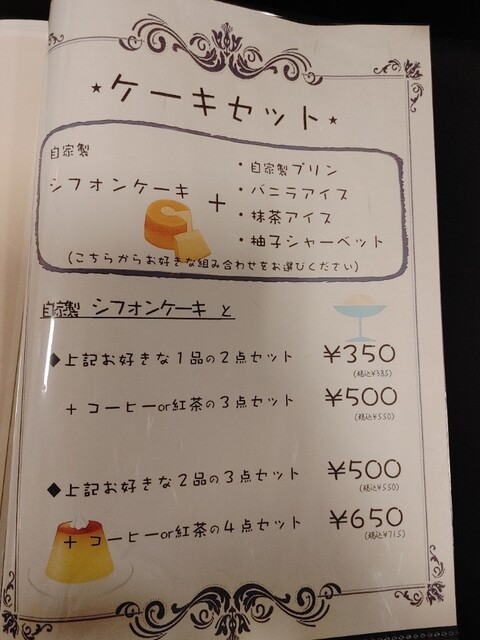 ★ケーキセット★
自家製
シフォンケーキ +
・自家製プリン
・バニラアイス
・抹茶アイス
・柚子シャーベット
(こちらからお好きな組み合わせをお選びください)
自家製 シフォンケーキ と
◆上記お好きな1品の2点セット ¥350
(税込¥385)
+ コーヒーor紅茶の3点セット ¥500
(税込¥550)
◆上記お好きな2品の3点セット ¥500
(税込¥550)
+ コーヒーor紅茶の4点セット ¥650
(税込¥715)